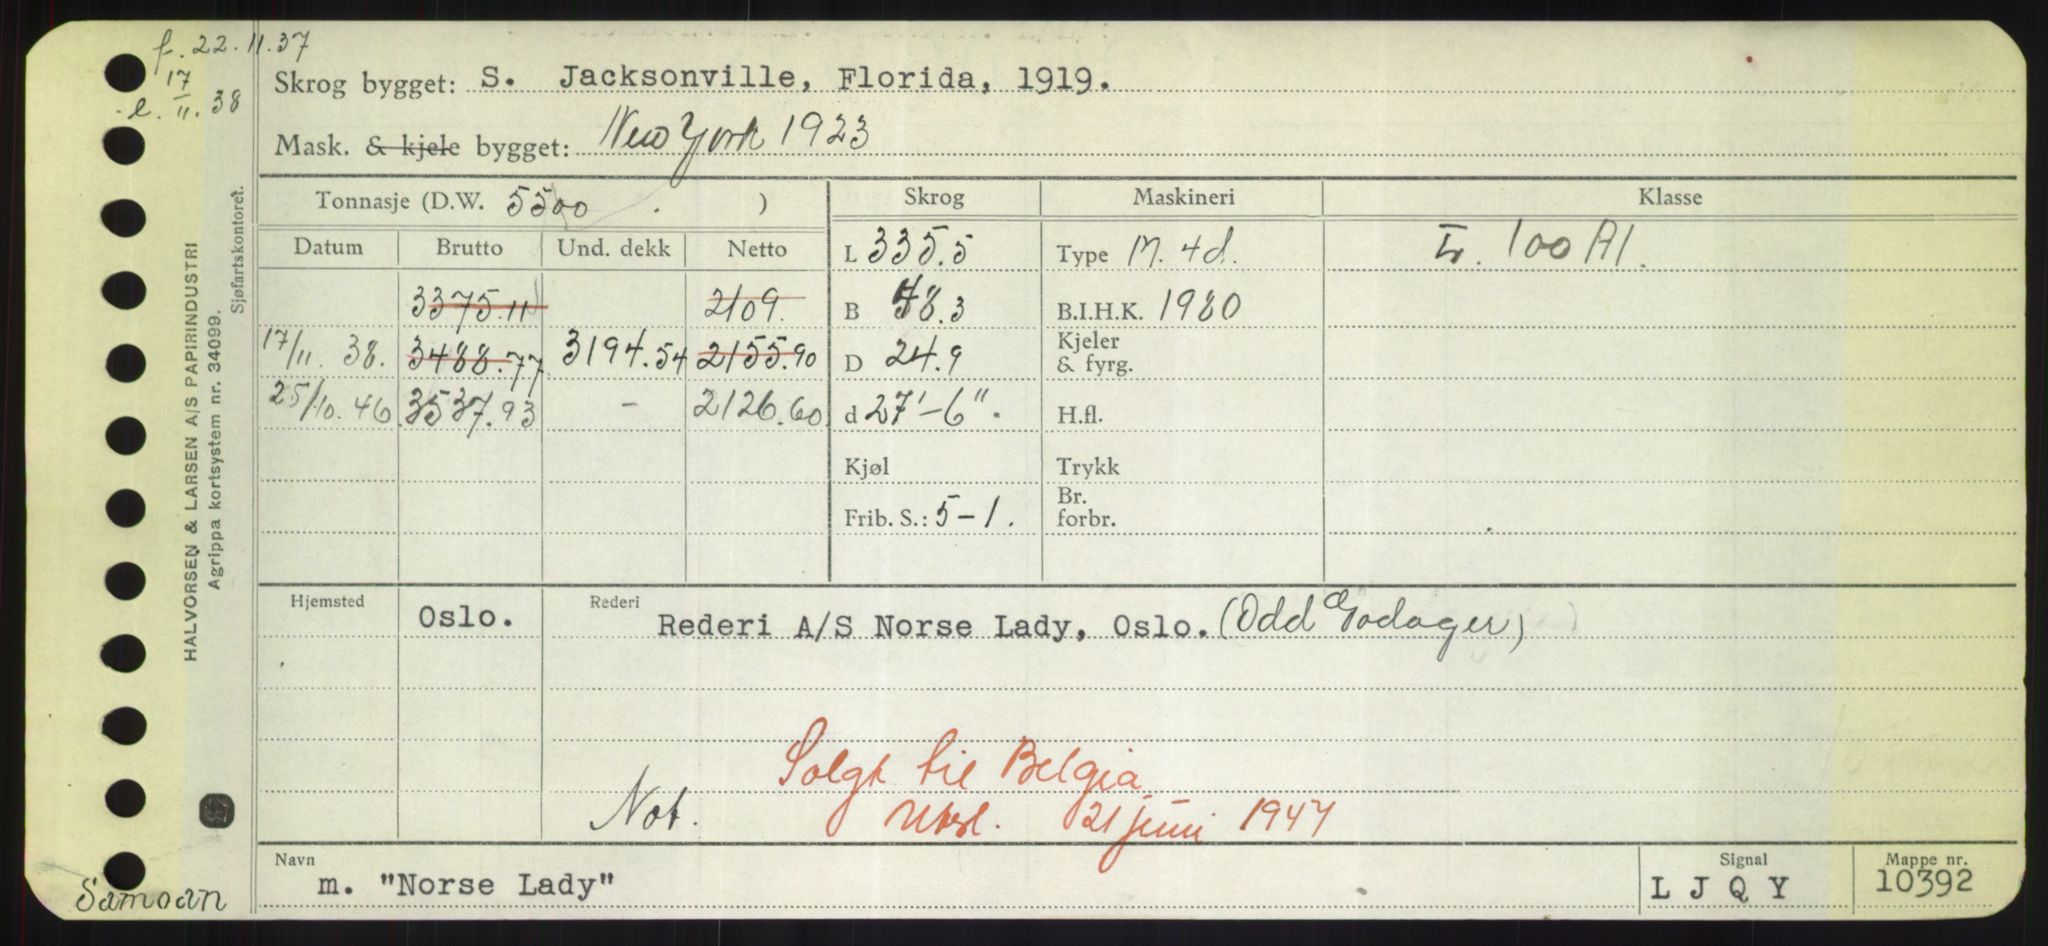 f. 22.11.37
17/11. 38
Skrog bygget: S. Jacksonville, Florida, 1919.
Mask. & kjele bygget: New York 1923
Tonnasje (D.W. 5500 )
Skrog Maskineri Klasse
Datum Brutto Und. dekk Netto
L 335.5 Type M. 4d. Ł. 100 A1.
3375.11 2109. B 48.3 B.I.H.K. 1980
17/11. 38. 3488.77 3194.54 2155.90 D 24.9 Kjeler & fyrg.
25/10. 46 3537.93 - 2126.60 d 27'-6". H.fl.
Kjøl Trykk
Frib. S.: 5-1. Br. forbr.
Hjemsted Oslo. Rederi Rederi A/S Norse Lady, Oslo. (Odd Godager)
Solgt til Belgia
Not. Utsl. 21 juni 1947
Navn m. "Norse Lady" Signal L J Q Y Mappe nr. 10392
Samoan
HALVORSEN & LARSEN A/S PAPIRINDUSTRI
Agrippa kortsystem nr. 34099.
Sjøfartskontoret.